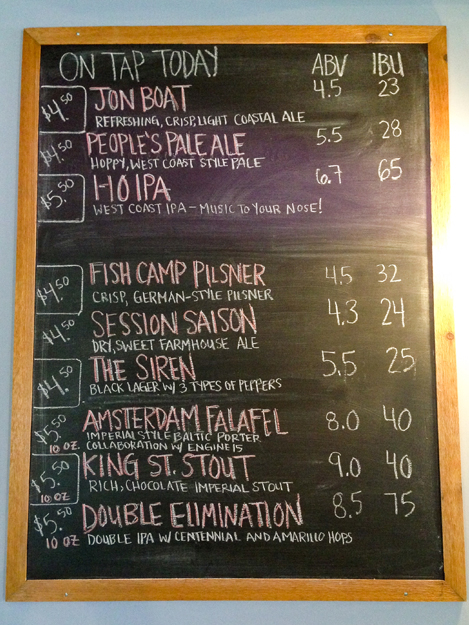 ON TAP TODAY ABV IBU
$4.50 JON BOAT 4.5 23
REFRESHING, CRISP, LIGHT COASTAL ALE
$4.50 PEOPLE'S PALE ALE 5.5 28
HOPPY, WEST COAST STYLE PALE
$5.50 I-10 IPA 6.7 65
WEST COAST IPA - MUSIC TO YOUR NOSE!
$4.50 FISH CAMP PILSNER 4.5 32
CRISP, GERMAN-STYLE PILSNER
$4.50 SESSION SAISON 4.3 24
DRY, SWEET FARMHOUSE ALE
$4.50 THE SIREN 5.5 25
BLACK LAGER W/ 3 TYPES OF PEPPERS
$5.50 AMSTERDAM FALAFEL 8.0 40
IMPERIAL STYLE BALTIC PORTER
10 OZ. COLLABORATION W/ ENGINE 15
$5.50 KING ST. STOUT 9.0 40
10 OZ RICH, CHOCOLATE IMPERIAL STOUT
$5.50 DOUBLE ELIMINATION 8.5 75
10 OZ DOUBLE IPA W/ CENTENNIAL AND AMARILLO HOPS